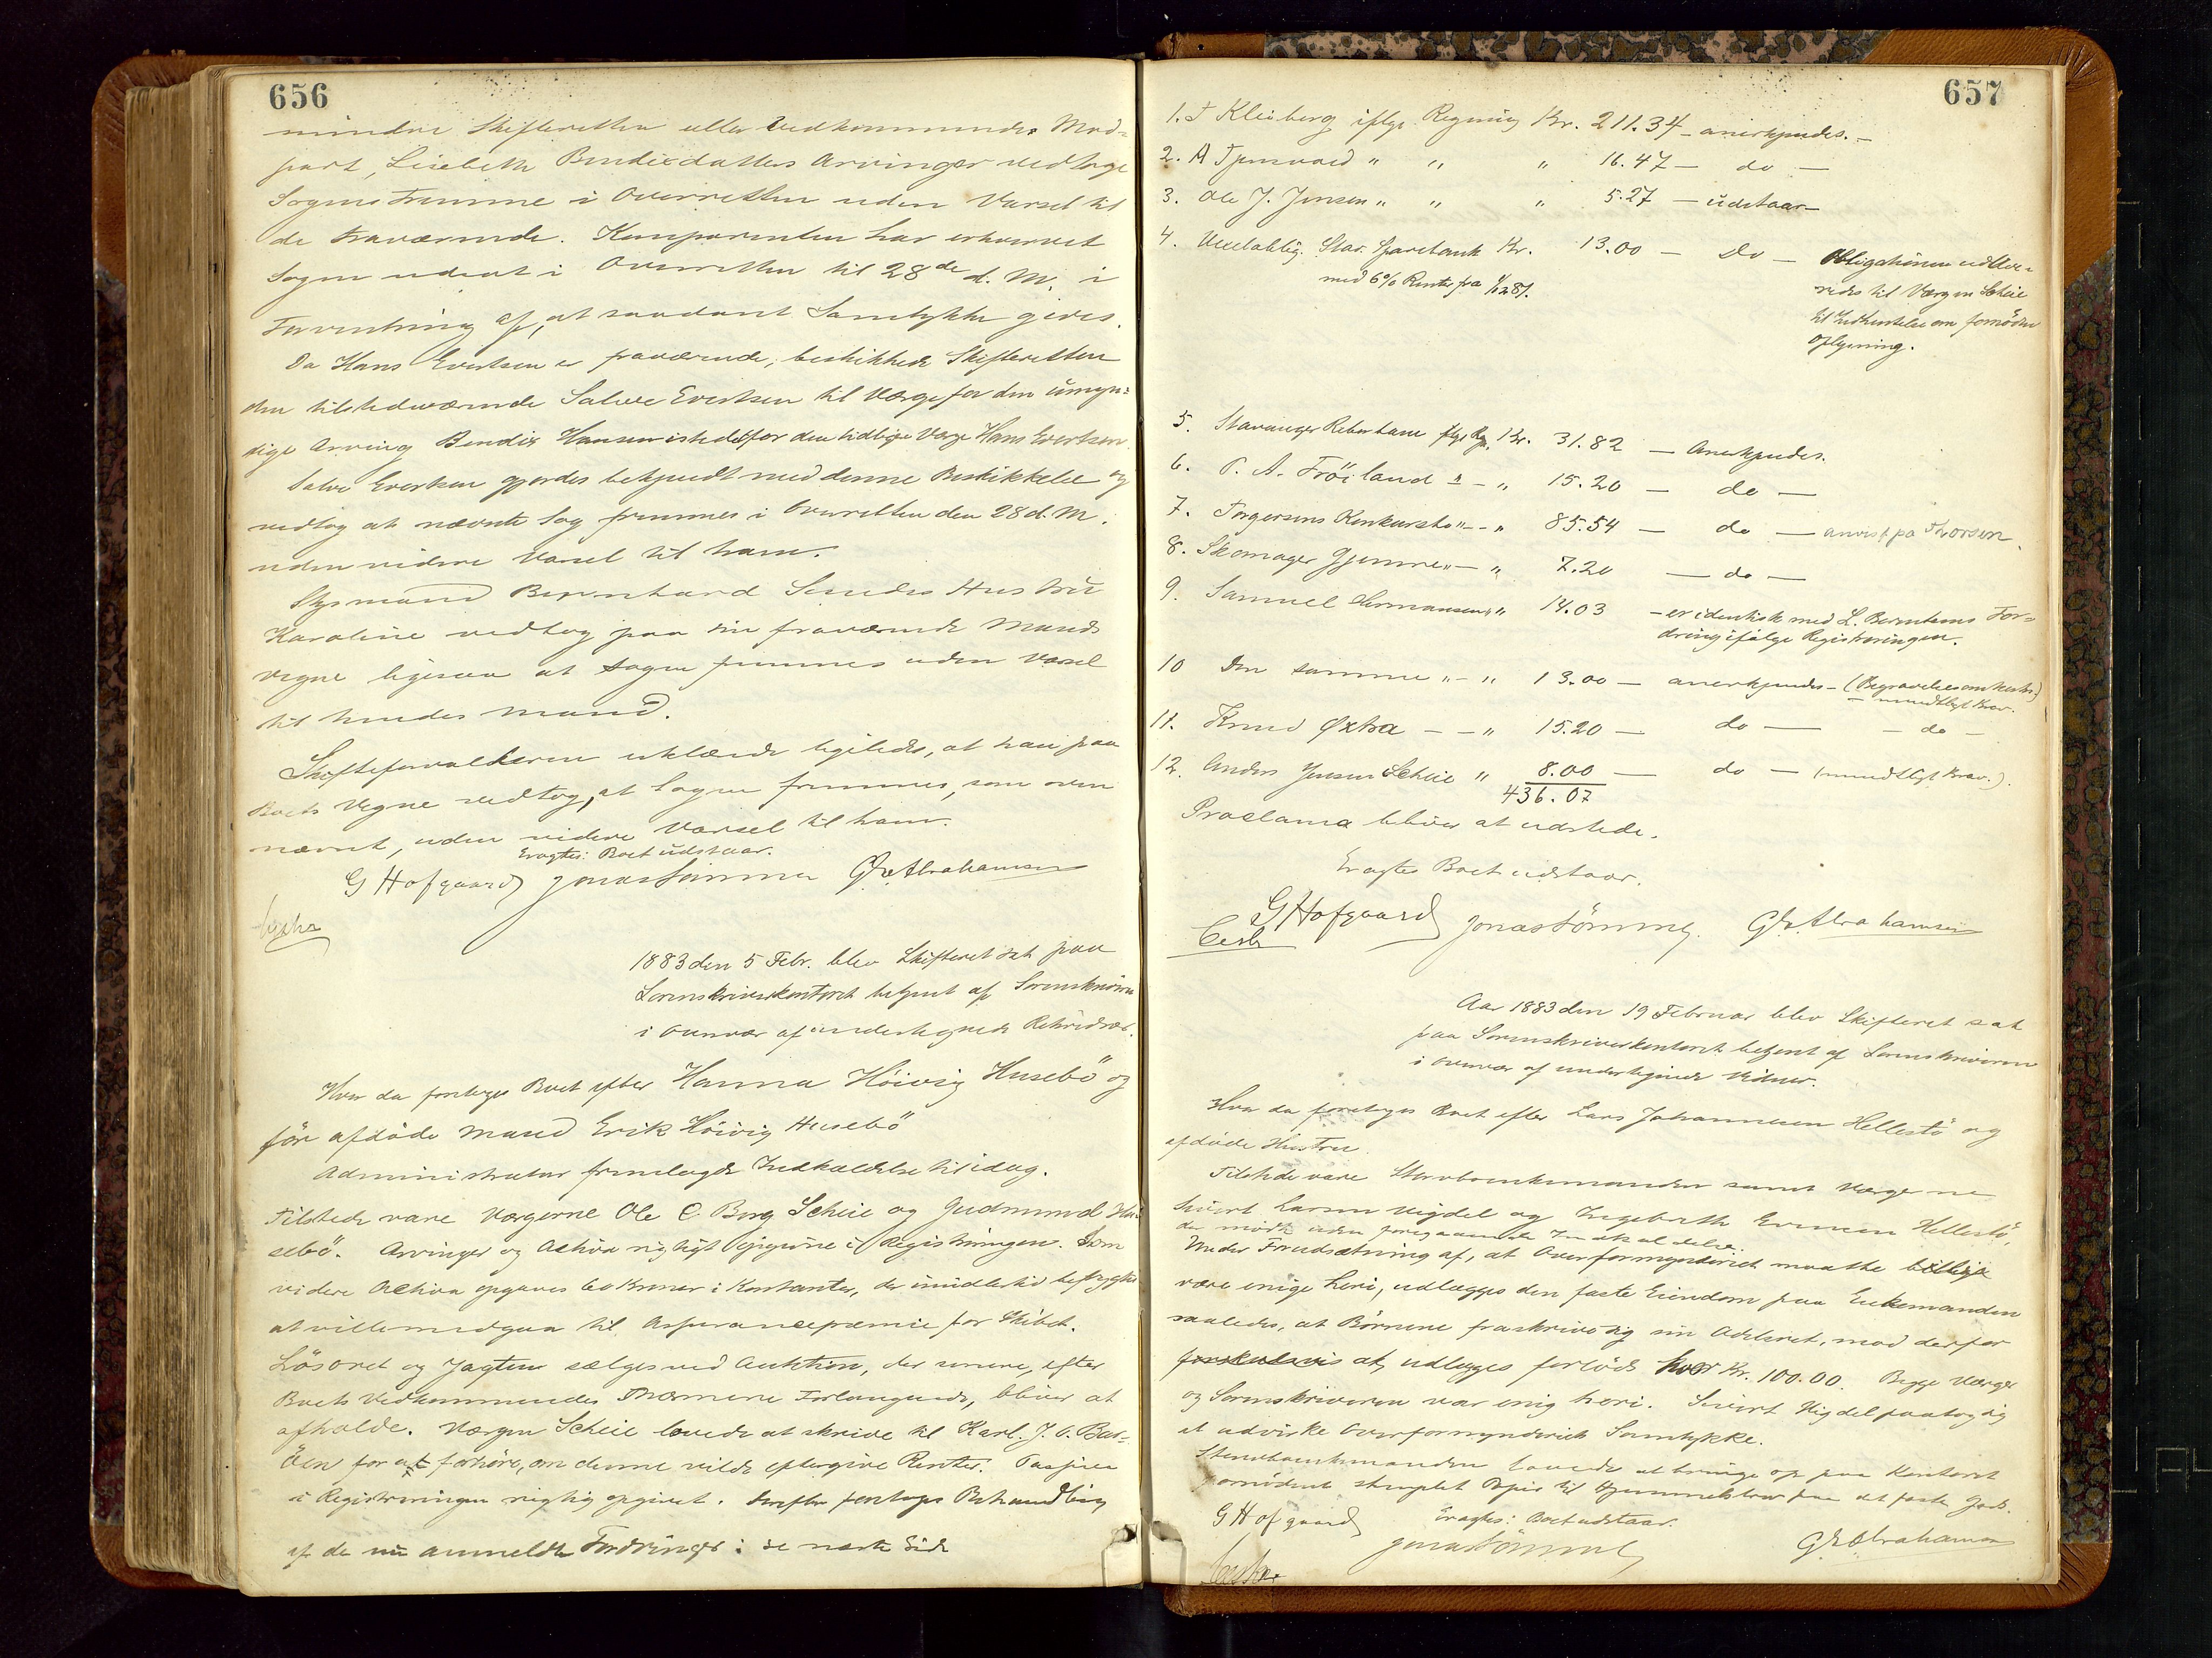 656
mindre Skifteretten eller Vedkommendes Mod-
part, Lisebeth Bendixdatters Arvinger vedtage
Sagens Fremme i Overretten uden Varsel til
de fraværende. Komparenten har erhvervet
Sagen udsat i Overretten til 28de d. M. i
Forventning af, at saadant Samtykke gives.
Da Hans Evertsen er fraværende, beskikkede Skifteretten
den tilstedeværende Salve Evertsen til Værge for den umyn-
dige Arving Bendix Hansen istedetfor den tidligere Værge Hans Evertsen
Salve Evertsen gjordes bekjendt med denne Beskikkelse og
vedtog at nævnte Sag fremmes i Overretten den 28 d. M.
uden videre Varsel til ham.
Styrmand Bernhard Hustru
Karoline vedtog paa sin fraværende Mands
Vegne ligesaa at Sagen fremmes uden Varsel
til hendes Mand.
Skifteforvalteren erklærede ligeledes, at han paa
Boets Vegne vedtog, at Sagen fremmes, som oven
nævnt, uden videre Varsel til ham.
Eragtes: Boet udstaar.
G Hofgaard Jonas Sømme G. Abrahamsen
1883 den 5 Febr. blev Skifteret sat paa
Sorenskriverkontoret betjent af Sorenskriveren
i Overvær af undertegnede Retsvidner.
Hvor da foretoges Boet efter Hanna Höivig Husebö og
før afdöde Mand Erik Höivig Husebö
Administrator fremlagde Indkaldelse til idag.
Tilstede vare Værgerne Ole C. Berg Scheie og Gudmund Hu-
sebö. Arvinger og Activa rigtigt opgivne i Registreringen. Som
videre Activa opgaves 60 Kroner i Kontanter, der imidlertid befrygtes
at ville medgaa til Assurancepræmie for Skibet.
Lösöret og Jagten sælges ved Auktion, der senere, efter
Boets Vedkommendes nærmere Forlangende, bliver at
afholde. Værgen Scheie lovede at skrive til Karl J. O. Bus-
öen for at forhøre, om denne vilde eftergive Renter. Passiva
i Registreringen rigtig opgivet. Derefter foretoges Behandling
af de nu anmeldte Fordringer: se næste Side
657
1. T Kleiberg iflge. Regning Kr. 211.34 - anerkjendes. -
2. A Tjensvold " " " 16.47 - do -
3. Ole J. Jensen " " " 5.27 - udstaar -
4. Vexelobllig. Stav. Sparebank Kr. 13.00 - Do - Obligationen udleve-
med 6% Renter fra 1/12 81. redes til Værgen Scheie
til Indhentelse om fornöden
Oplysning.
5. Stavanger Reberbane flge Rg. Kr. 31.82 - Anerkjendes.
6. P. A. Fröiland " - " 15.20 - do -
7. Torgersens Konkursbo " - " 85.54 - do - anvist paa Thorsen.
8. Skomager Gjemre " - " 7.20 - do -
9. Samuel Hermansen " " 14.03 - er identisk med L. Berntsens For-
dring ifølge Registreringen.
10 Den samme " - " 13.00 - anerkjendes - (Begravelsesomkostn.)
- mundtligt Krav.
11. Knud Øxtra - - " 15.20 - do - - do -
12. Anders Jensen Scheie " 8.00 - do - (mundtligt Krav.)
436.07
Proclama bliver at udstede.
Eragtes Boet udstaar.
G Hofgaard Jonas Sömme. G. Abrahamsen
Aar 1883 den 19 Februar blev Skifteret sat
paa Sorenskriverkontoret betjent af Sorenskriveren
i Overvær af undertegnede Vidner.
Hvor da foretoges Boet efter Lars Johannesen Hellestö og
afdöde Hustru.
Tilstede vare Stervboenkemanden samt Værgerne
Sivert Larsen Vigdel og Ingebreth Hellestö,
de mödte uden foregaaende Indkaldelse.
Under Forudsætning af, at Overformynderiet maatte
være enige heri, udlægges den faste Eiendom paa Enkemanden
saaledes, at Börnene fraskrive sig sin Odelsret, mod derfor
at udlægges forlods hver Kr. 100.00. Begge Værger
og Sorenskriveren var enig heri. Sivert Vigdel paatog sig
at udvirke Overformynderiets Samtykke.
Stervboenkemanden lovede at bringe op paa Kontoret
fornödent stemplet Papir til Hjemmelsbrev paa det faste Gods.
Eragtes: Boet udstaar.
G Hofgaard Jonas Sömme G. Abrahamsen